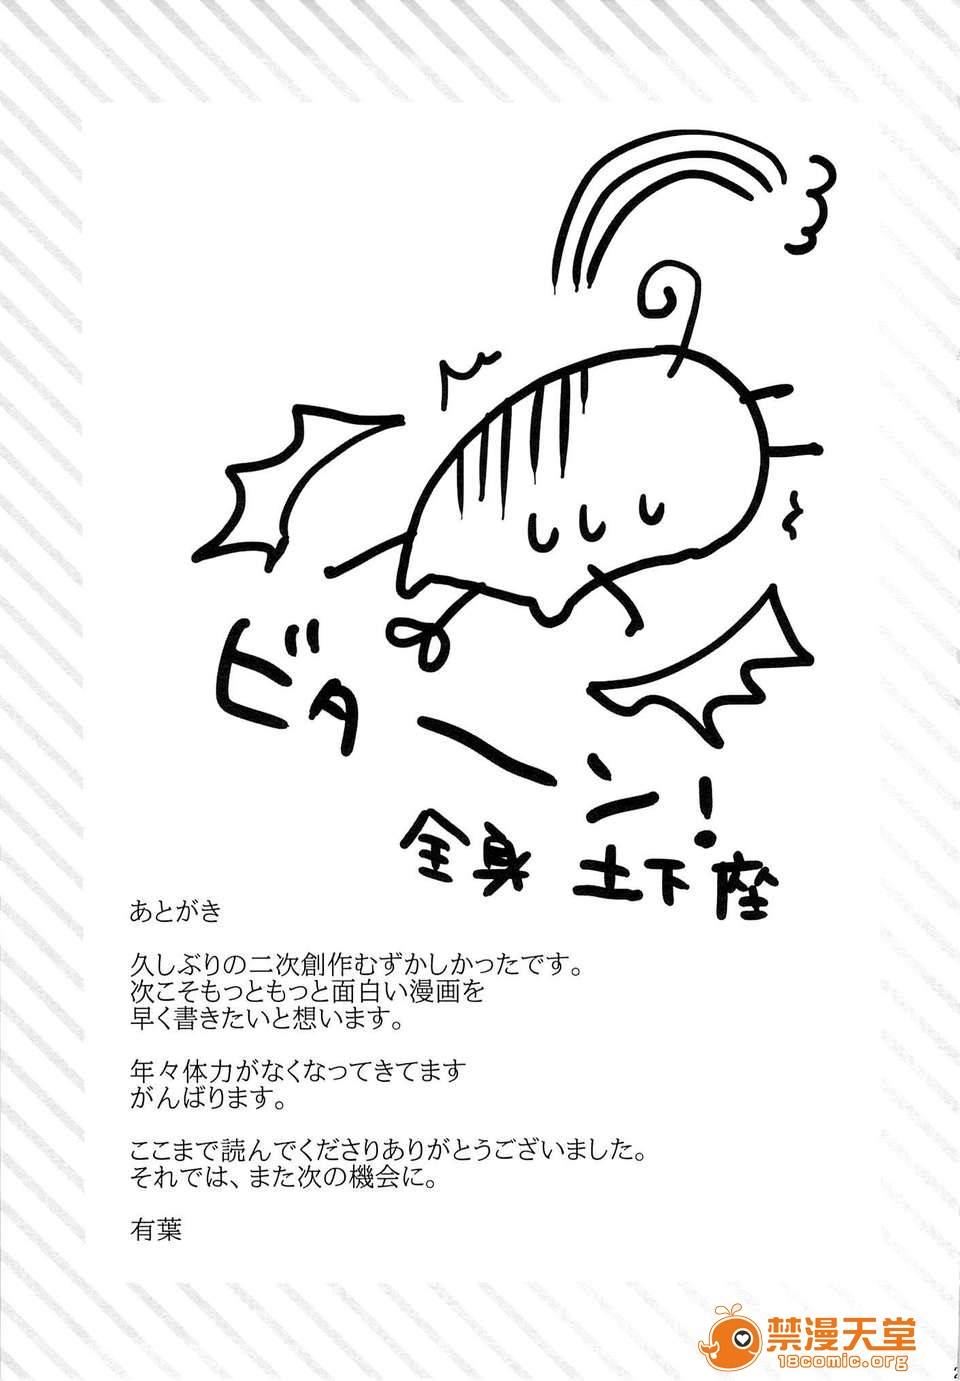 ビターン!
全身 土下座
あとがき
久しぶりの二次創作むずかしかったです。
次こそもっともっと面白い漫画を
早く書きたいと想います。
年々体力がなくなってきてます
がんばります。
ここまで読んでくださりありがとうございました。
それでは、また次の機会に。
有葉
禁漫天堂
18comic.org